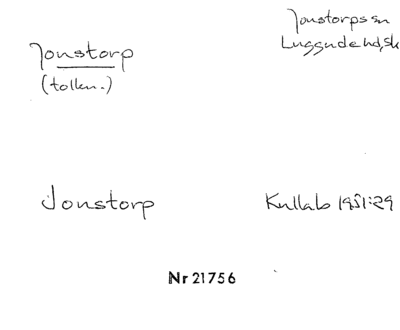 Jonstorp
(tolkn.)
Jonstorps sn
Luggude hd, Sk
Jonstorp
Kullab 1951:29
Nr 21756